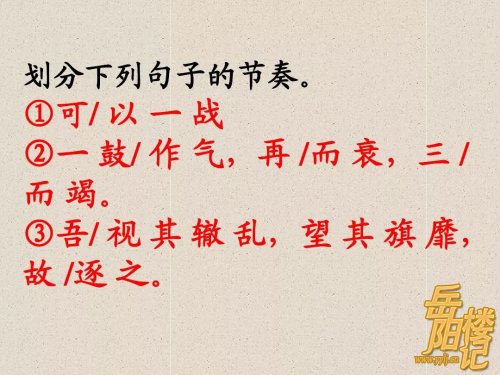 划分下列句子的节奏。
①可/以一战
②一鼓/作气，再/而衰，三/
而竭。
③吾/视其辙乱，望其旗靡，
故/逐之。
岳阳楼记
www.yylj.cn